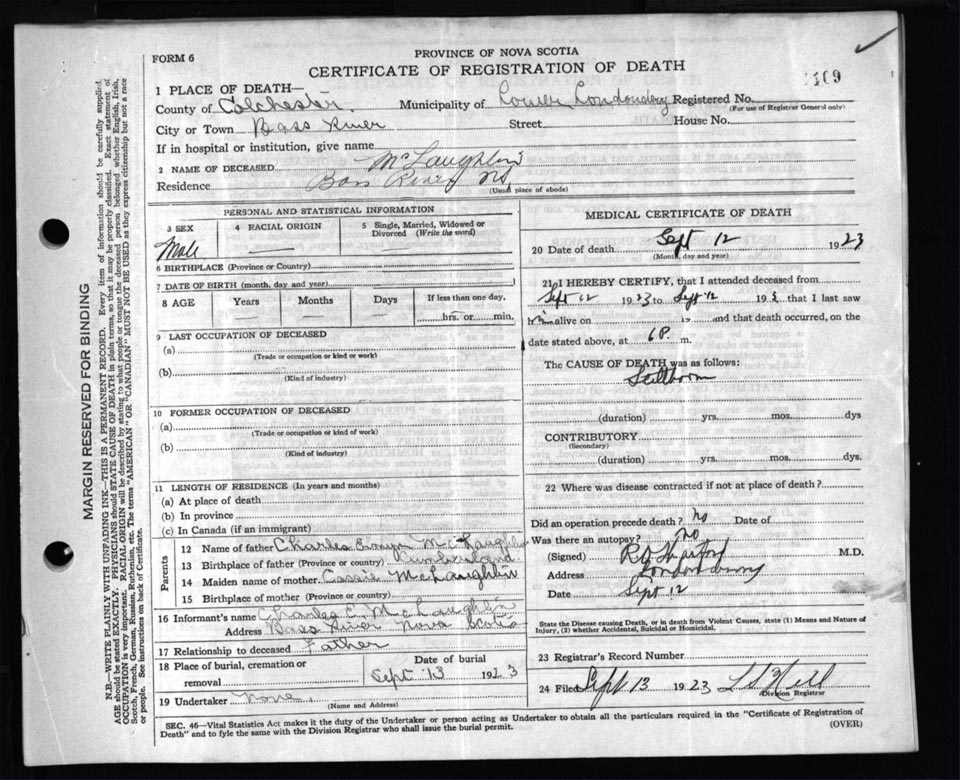 FORM 6
PROVINCE OF NOVA SCOTIA
CERTIFICATE OF REGISTRATION OF DEATH
1109
1 PLACE OF DEATH—
County of Colchester. Municipality of Lower Londonderry Registered No.
(For use of Registrar General only)
City or Town Bass River Street House No.
If in hospital or institution, give name
2 NAME OF DECEASED McLaughlin
Residence Bass River NS
(Usual place of abode)
PERSONAL AND STATISTICAL INFORMATION
3 SEX
Male
4 RACIAL ORIGIN
5 Single, Married, Widowed or Divorced (Write the word)
6 BIRTHPLACE (Province or Country)
7 DATE OF BIRTH (month, day and year)
8 AGE Years Months Days If less than one day,
hrs. or min.
9 LAST OCCUPATION OF DECEASED
(a)
(Trade or occupation or kind of work)
(b)
(Kind of industry)
10 FORMER OCCUPATION OF DECEASED
(a)
(Trade or occupation or kind of work)
(b)
(Kind of industry)
11 LENGTH OF RESIDENCE (In years and months)
(a) At place of death
(b) In province
(c) In Canada (if an immigrant)
Parents
12 Name of father Charles McLaughlin
13 Birthplace of father (Province or country) Cumberland
14 Maiden name of mother Cassie McLaughlin
15 Birthplace of mother (Province or country)
16 Informant's name Charles E McLaughlin
Address Bass River Nova Scotia
17 Relationship to deceased Father
18 Place of burial, cremation or removal
Date of burial
Sept 13 1923
19 Undertaker None.
(Name and Address)
MEDICAL CERTIFICATE OF DEATH
20 Date of death Sept 12 1923
(Month, day and year)
21 I HEREBY CERTIFY, that I attended deceased from
Sept 12 1923 to Sept 12 193 that I last saw
him alive on 19 and that death occurred, on the
date stated above, at 6 P. m.
The CAUSE OF DEATH was as follows:
Stillborn
(duration) yrs. mos. dys
CONTRIBUTORY
(Secondary)
(duration) yrs. mos. dys.
22 Where was disease contracted if not at place of death?
Did an operation precede death? no Date of
Was there an autopsy? no
(Signed) M.D.
Address Londonderry
Date Sept 12
State the Disease causing Death, or in death from Violent Causes, state (1) Means and Nature of
Injury, (2) whether Accidental, Suicidal or Homicidal.
23 Registrar's Record Number
24 Filed Sept 13 1923
Division Registrar
SEC. 46—Vital Statistics Act makes it the duty of the Undertaker or person acting as Undertaker to obtain all the particulars required in the "Certificate of Registration of
Death" and to fyle the same with the Division Registrar who shall issue the burial permit.
(OVER)
MARGIN RESERVED FOR BINDING
N.B.—WRITE PLAINLY WITH UNFADING INK—THIS IS A PERMANENT RECORD. Every item of information should be carefully supplied.
AGE should be stated EXACTLY. PHYSICIANS should STATE CAUSE OF DEATH in plain terms, so that it may be properly classified. Exact statement of
OCCUPATION is very important. RACIAL ORIGIN will be described by stating to what people or tongue the deceased person belonged whether English, Irish,
Scotch, French, German, Russian, Ruthenian, etc. The terms "AMERICAN" OR "CANADIAN" MUST NOT BE USED as they express citizenship but not a race
or people. See instructions on back of Certificate.